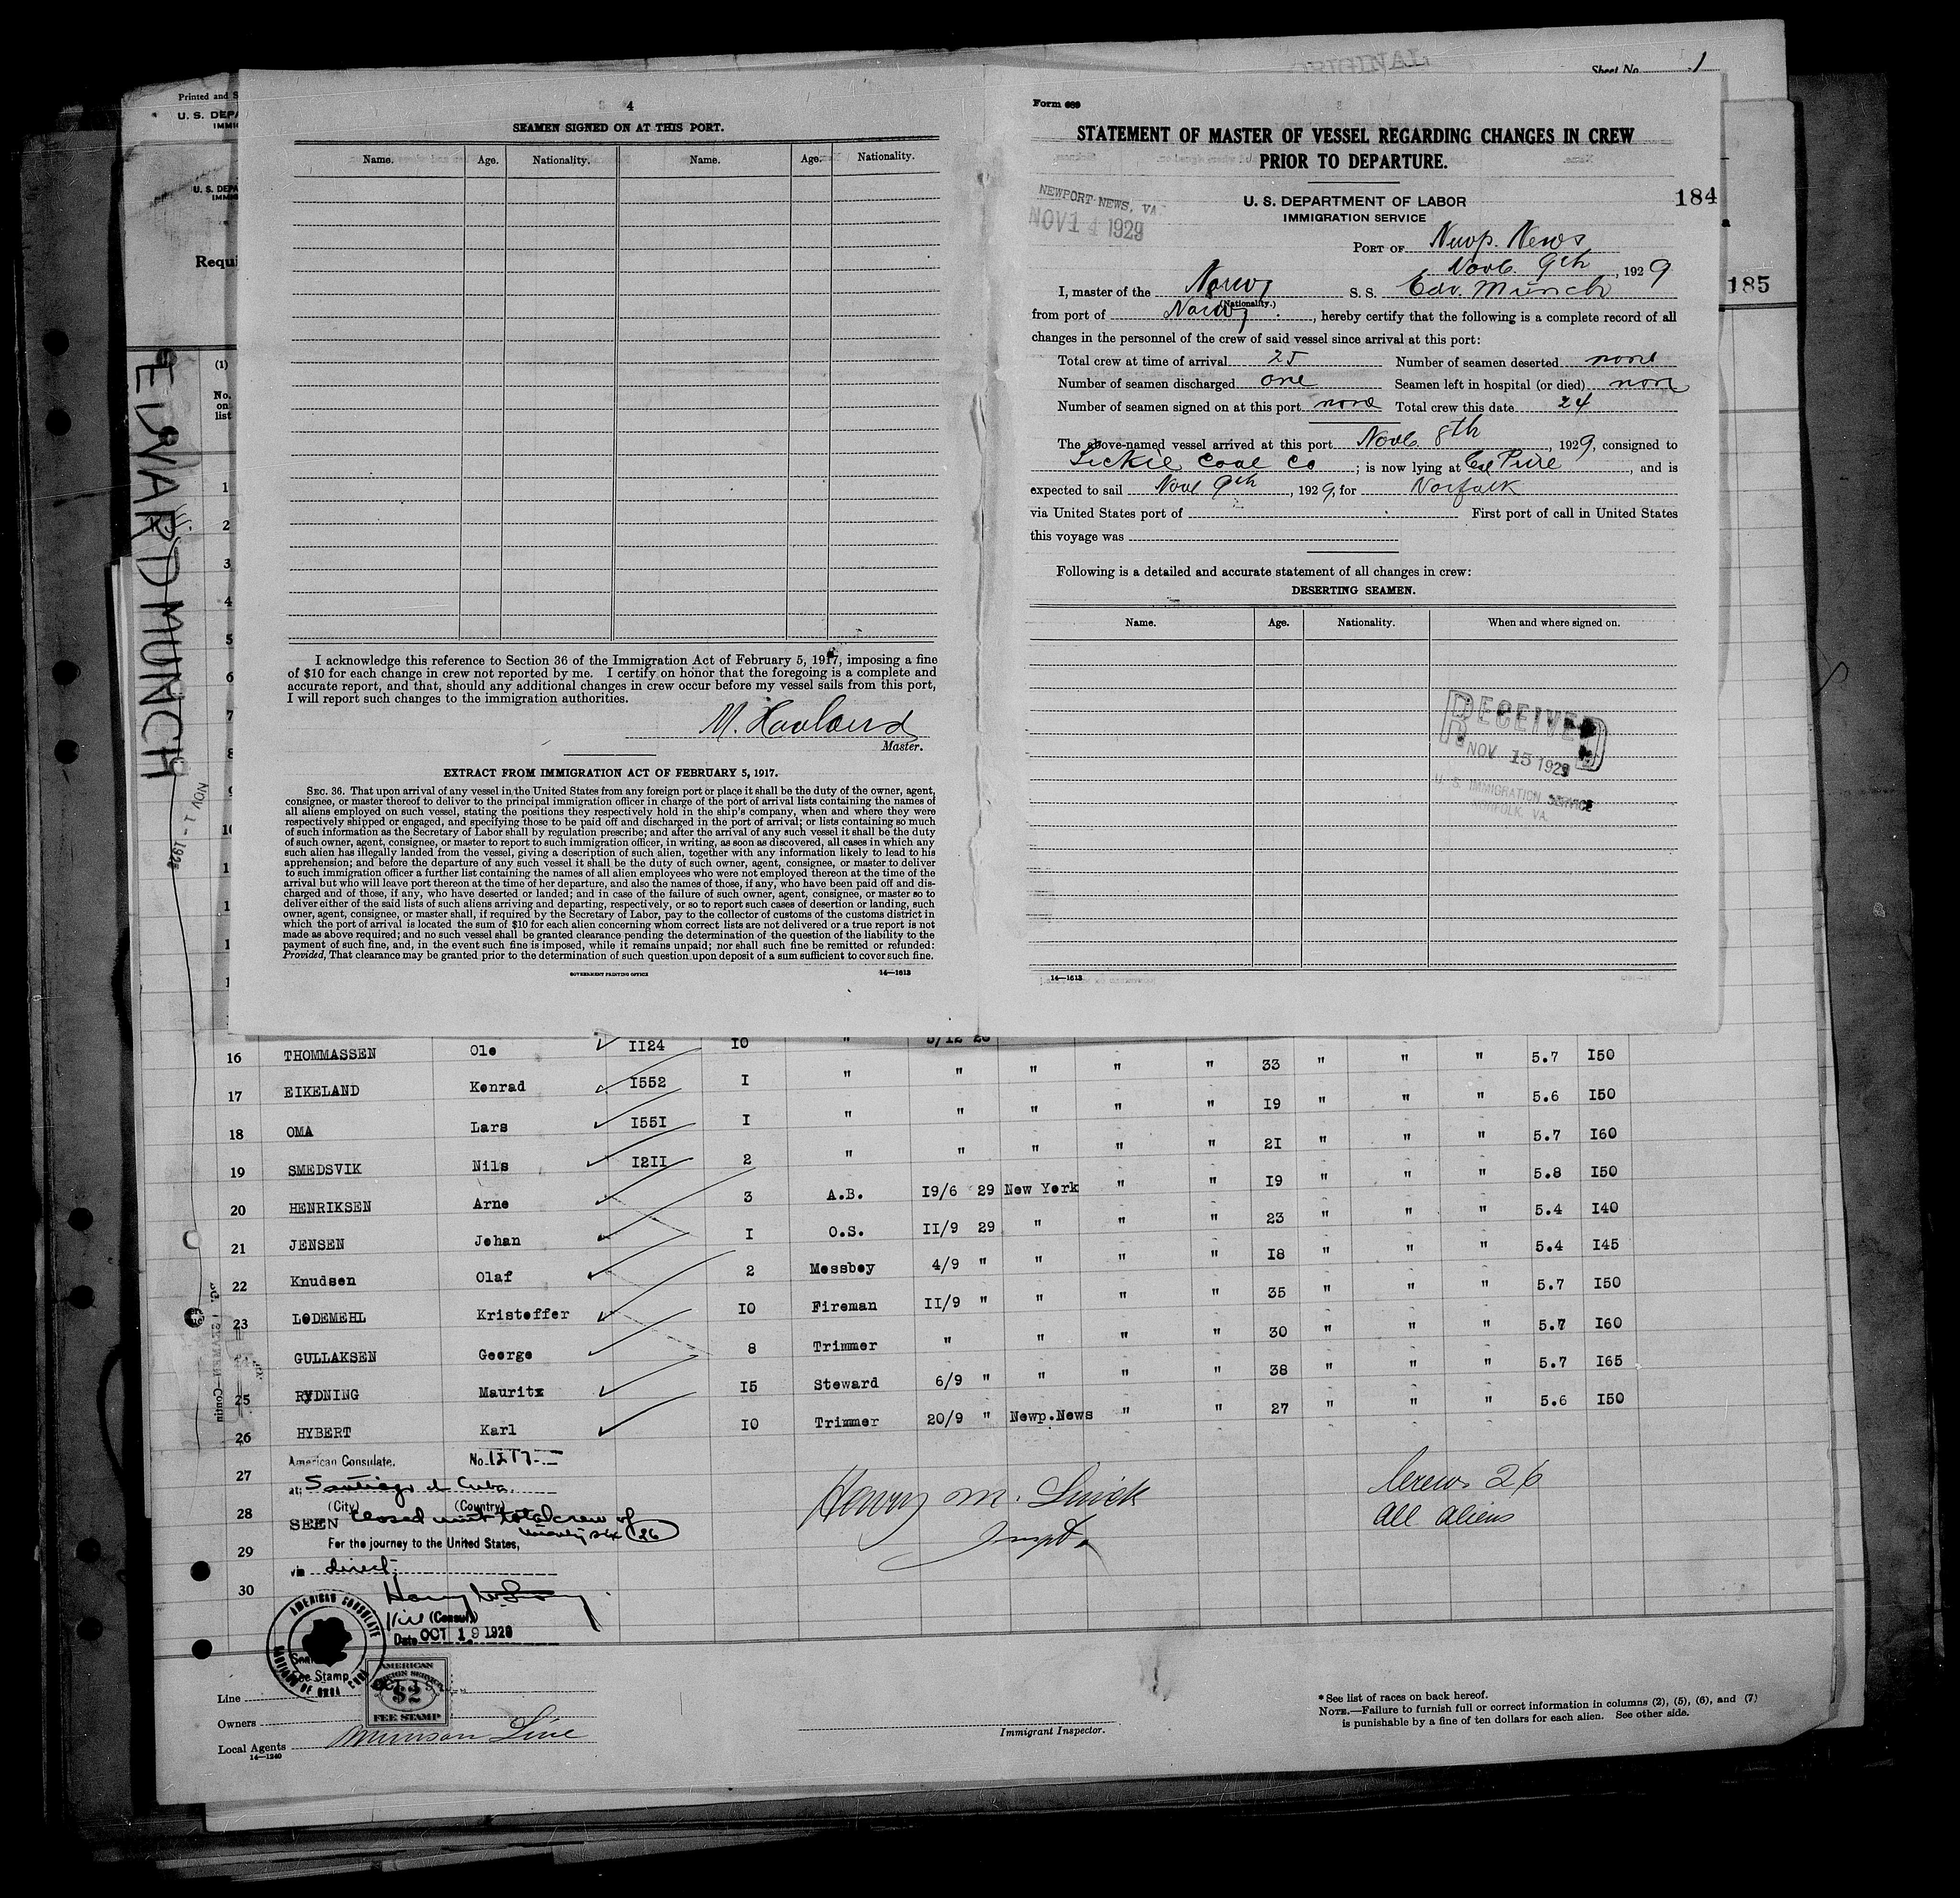 4
SEAMEN SIGNED ON AT THIS PORT.
Name. Age. Nationality. Name. Age. Nationality.
I acknowledge this reference to Section 36 of the Immigration Act of February 5, 1917, imposing a fine
of $10 for each change in crew not reported by me. I certify on honor that the foregoing is a complete and
accurate report, and that, should any additional changes in crew occur before my vessel sails from this port,
I will report such changes to the immigration authorities.
M. Haaland
Master.
EXTRACT FROM IMMIGRATION ACT OF FEBRUARY 5, 1917.
SEC. 36. That upon arrival of any vessel in the United States from any foreign port or place it shall be the duty of the owner, agent,
consignee, or master thereof to deliver to the principal immigration officer in charge of the port of arrival lists containing the names of
all aliens employed on such vessel, stating the positions they respectively hold in the ship's company, when and where they were
respectively shipped or engaged, and specifying those to be paid off and discharged in the port of arrival; or lists containing so much
of such information as the Secretary of Labor shall by regulation prescribe; and after the arrival of any such vessel it shall be the duty
of such owner, agent, consignee, or master to report to such immigration officer, in writing, as soon as discovered, all cases in which any
such alien has illegally landed from the vessel, giving a description of such alien, together with any information likely to lead to his
apprehension; and before the departure of any such vessel it shall be the duty of such owner, agent, consignee, or master to deliver
to such immigration officer a further list containing the names of all alien employees who were not employed thereon at the time of the
arrival but who will leave port thereon at the time of her departure, and also the names of those, if any, who have been paid off and dis-
charged and of those, if any, who have deserted or landed; and in case of the failure of such owner, agent, consignee, or master so to
deliver either of the said lists of such aliens arriving and departing, respectively, or so to report such cases of desertion or landing, such
owner, agent, consignee, or master shall, if required by the Secretary of Labor, pay to the collector of customs of the customs district in
which the port of arrival is located the sum of $10 for each alien concerning whom correct lists are not delivered or a true report is not
made as above required; and no such vessel shall be granted clearance pending the determination of the question of the liability to the
payment of such fine, and, in the event such fine is imposed, while it remains unpaid; nor shall such fine be remitted or refunded:
Provided, That clearance may be granted prior to the determination of such question upon deposit of a sum sufficient to cover such fine.
GOVERNMENT PRINTING OFFICE 14—1613
ORIGINAL
Sheet No. 1
Form 689
STATEMENT OF MASTER OF VESSEL REGARDING CHANGES IN CREW
PRIOR TO DEPARTURE.
NEWPORT NEWS, VA.
NOV 14 1929
U. S. DEPARTMENT OF LABOR
IMMIGRATION SERVICE
184
PORT OF Newp. News
Novb. 9th, 1929
I, master of the Norwg S. S. Edv. Munch
(Nationality.)
from port of Norwg, hereby certify that the following is a complete record of all
changes in the personnel of the crew of said vessel since arrival at this port:
Total crew at time of arrival 25 Number of seamen deserted none
Number of seamen discharged one Seamen left in hospital (or died) none
Number of seamen signed on at this port none Total crew this date 24
The above-named vessel arrived at this port Novb. 8th, 1929, consigned to
Coal Co; is now lying at, and is
expected to sail Novb 9th, 1929, for Norfolk
via United States port of First port of call in United States
this voyage was
Following is a detailed and accurate statement of all changes in crew:
DESERTING SEAMEN.
Name. Age. Nationality. When and where signed on.
RECEIVED
NOV 15 1929
U. S. IMMIGRATION SERVICE
NORFOLK, VA.
14—1613
185
Printed and S
U. S. DEPA
IMMIG
U. S. DEPA
IMMIG
Requi
(1)
No.
on
list
1
2
3
4
5
6
7
8
9
EDVARD MUNCH
NOV 1 - 1929
16 THOMMASSEN Ole 1124 10 " 5/12 28 33 " " " 5.7 150
17 EIKELAND Konrad 1552 1 " " " " " 19 " " " 5.6 150
18 OMA Lars 1551 1 " " " " " 21 " " " 5.7 160
19 SMEDSVIK Nils 1211 2 " " " " " 19 " " " 5.8 150
20 HENRIKSEN Arne 3 A.B. 19/6 29 New York " " 23 " " " 5.4 140
21 JENSEN Johan 1 O.S. 11/9 29 " " " 18 " " " 5.4 145
22 Knudsen Olaf 2 Messboy 4/9 " " " " 35 " " " 5.7 150
23 LODEMEHL Kristoffer 10 Fireman 11/9 " " " " 30 " " " 5.7 160
24 GULLAKSEN George 8 Trimmer " " " " 38 " " " 5.7 165
25 RYDNING Mauritz 15 Steward 6/9 " " " " 27 " " " 5.6 150
26 HYBERT Karl 10 Trimmer 20/9 " Newp.News " "
27
28
29
30
American Consulate. No. 1217
at: Santiago d Cuba.
(City) (Country)
SEEN closed with total crew of
twenty six (26)
For the journey to the United States,
via direct.
Vice (Consul)
Date OCT 19 1929
AMERICAN CONSULATE
SANTIAGO DE CUBA
Fee Stamp
AMERICAN
FOREIGN SERVICE
$2
FEE STAMP
Harry M.
Inspt.
Crew 26
All aliens
Line
Owners
Local Agents Munson Line
14—1240
Immigrant Inspector.
* See list of races on back hereof.
NOTE.—Failure to furnish full or correct information in columns (2), (5), (6), and (7)
is punishable by a fine of ten dollars for each alien. See other side.